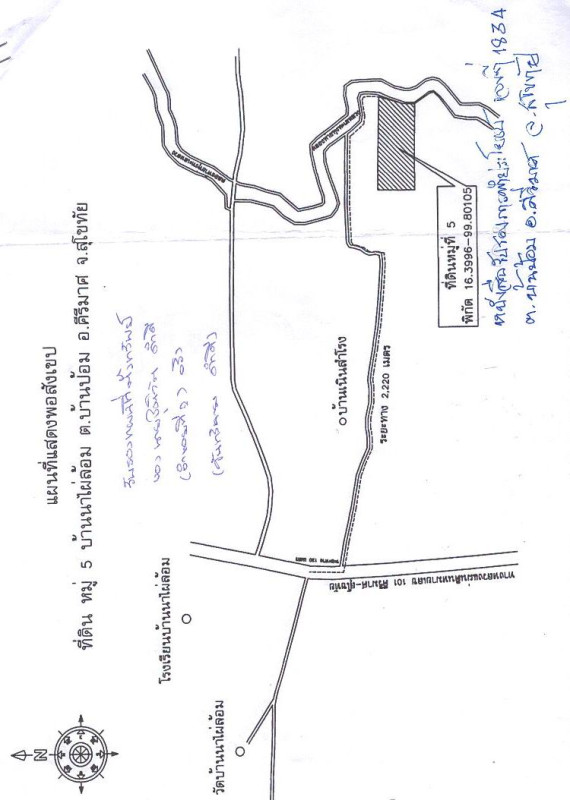 แผนที่แสดงพอสังเขป
ที่ดิน หมู่ 5 บ้านนาไผ่ล้อม ต.บ้านป้อม อ.คีรีมาศ จ.สุโขทัย
N
โรงเรียนบ้านนาไผ่ล้อม
วัดบ้านนาไผ่ล้อม
บ้านเนินสำโรง
ระยะทาง 2,220 เมตร
ทางหลวงแผ่นดินหมายเลข 101 คีรีมาศ-สุโขทัย
ที่ดินหมู่ที่ 5
พิกัด 16.3996-99.80105
หนังสือรับรองการทำประโยชน์ เลขที่ 1834
ต.บ้านป้อม อ.คีรีมาศ จ.สุโขทัย